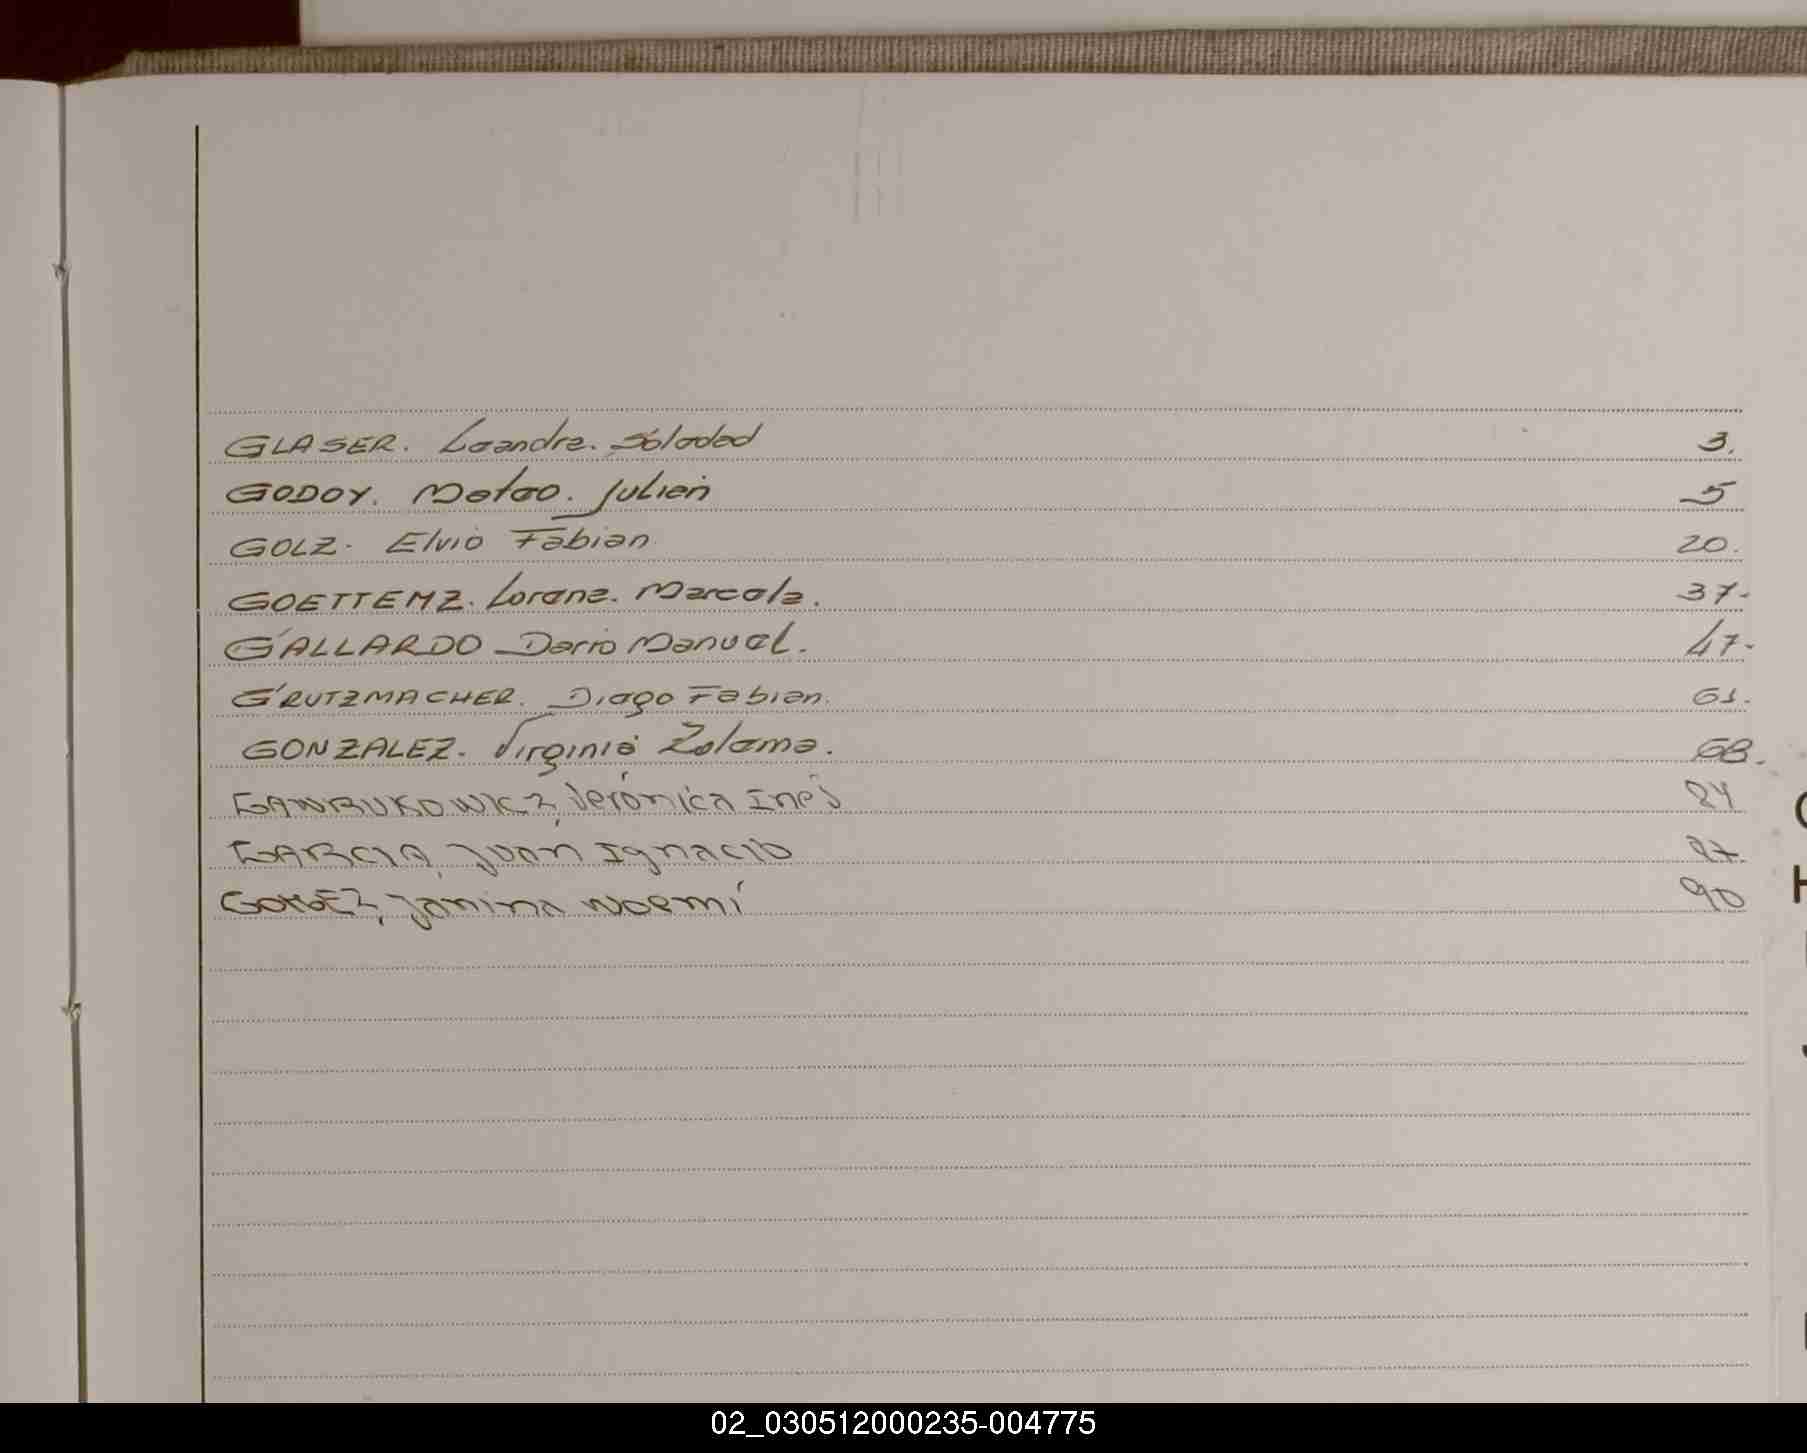 GLASER. Leandra. Soledad 3.
GODOY. Mateo. Julián 5
GOLZ. Elvio Fabian 20.
GOETTEMZ. Lorena. Marcela. 37-
GALLARDO Dario Manuel. 47-
GRUTZMACHER. Diego Fabian. 61.
GONZALEZ. Virginia Zulema. 68.
Verónica Inés 84
GARCIA, Juan Ignacio 87
GOMEZ, Janina Noemí 90
02_030512000235-004775